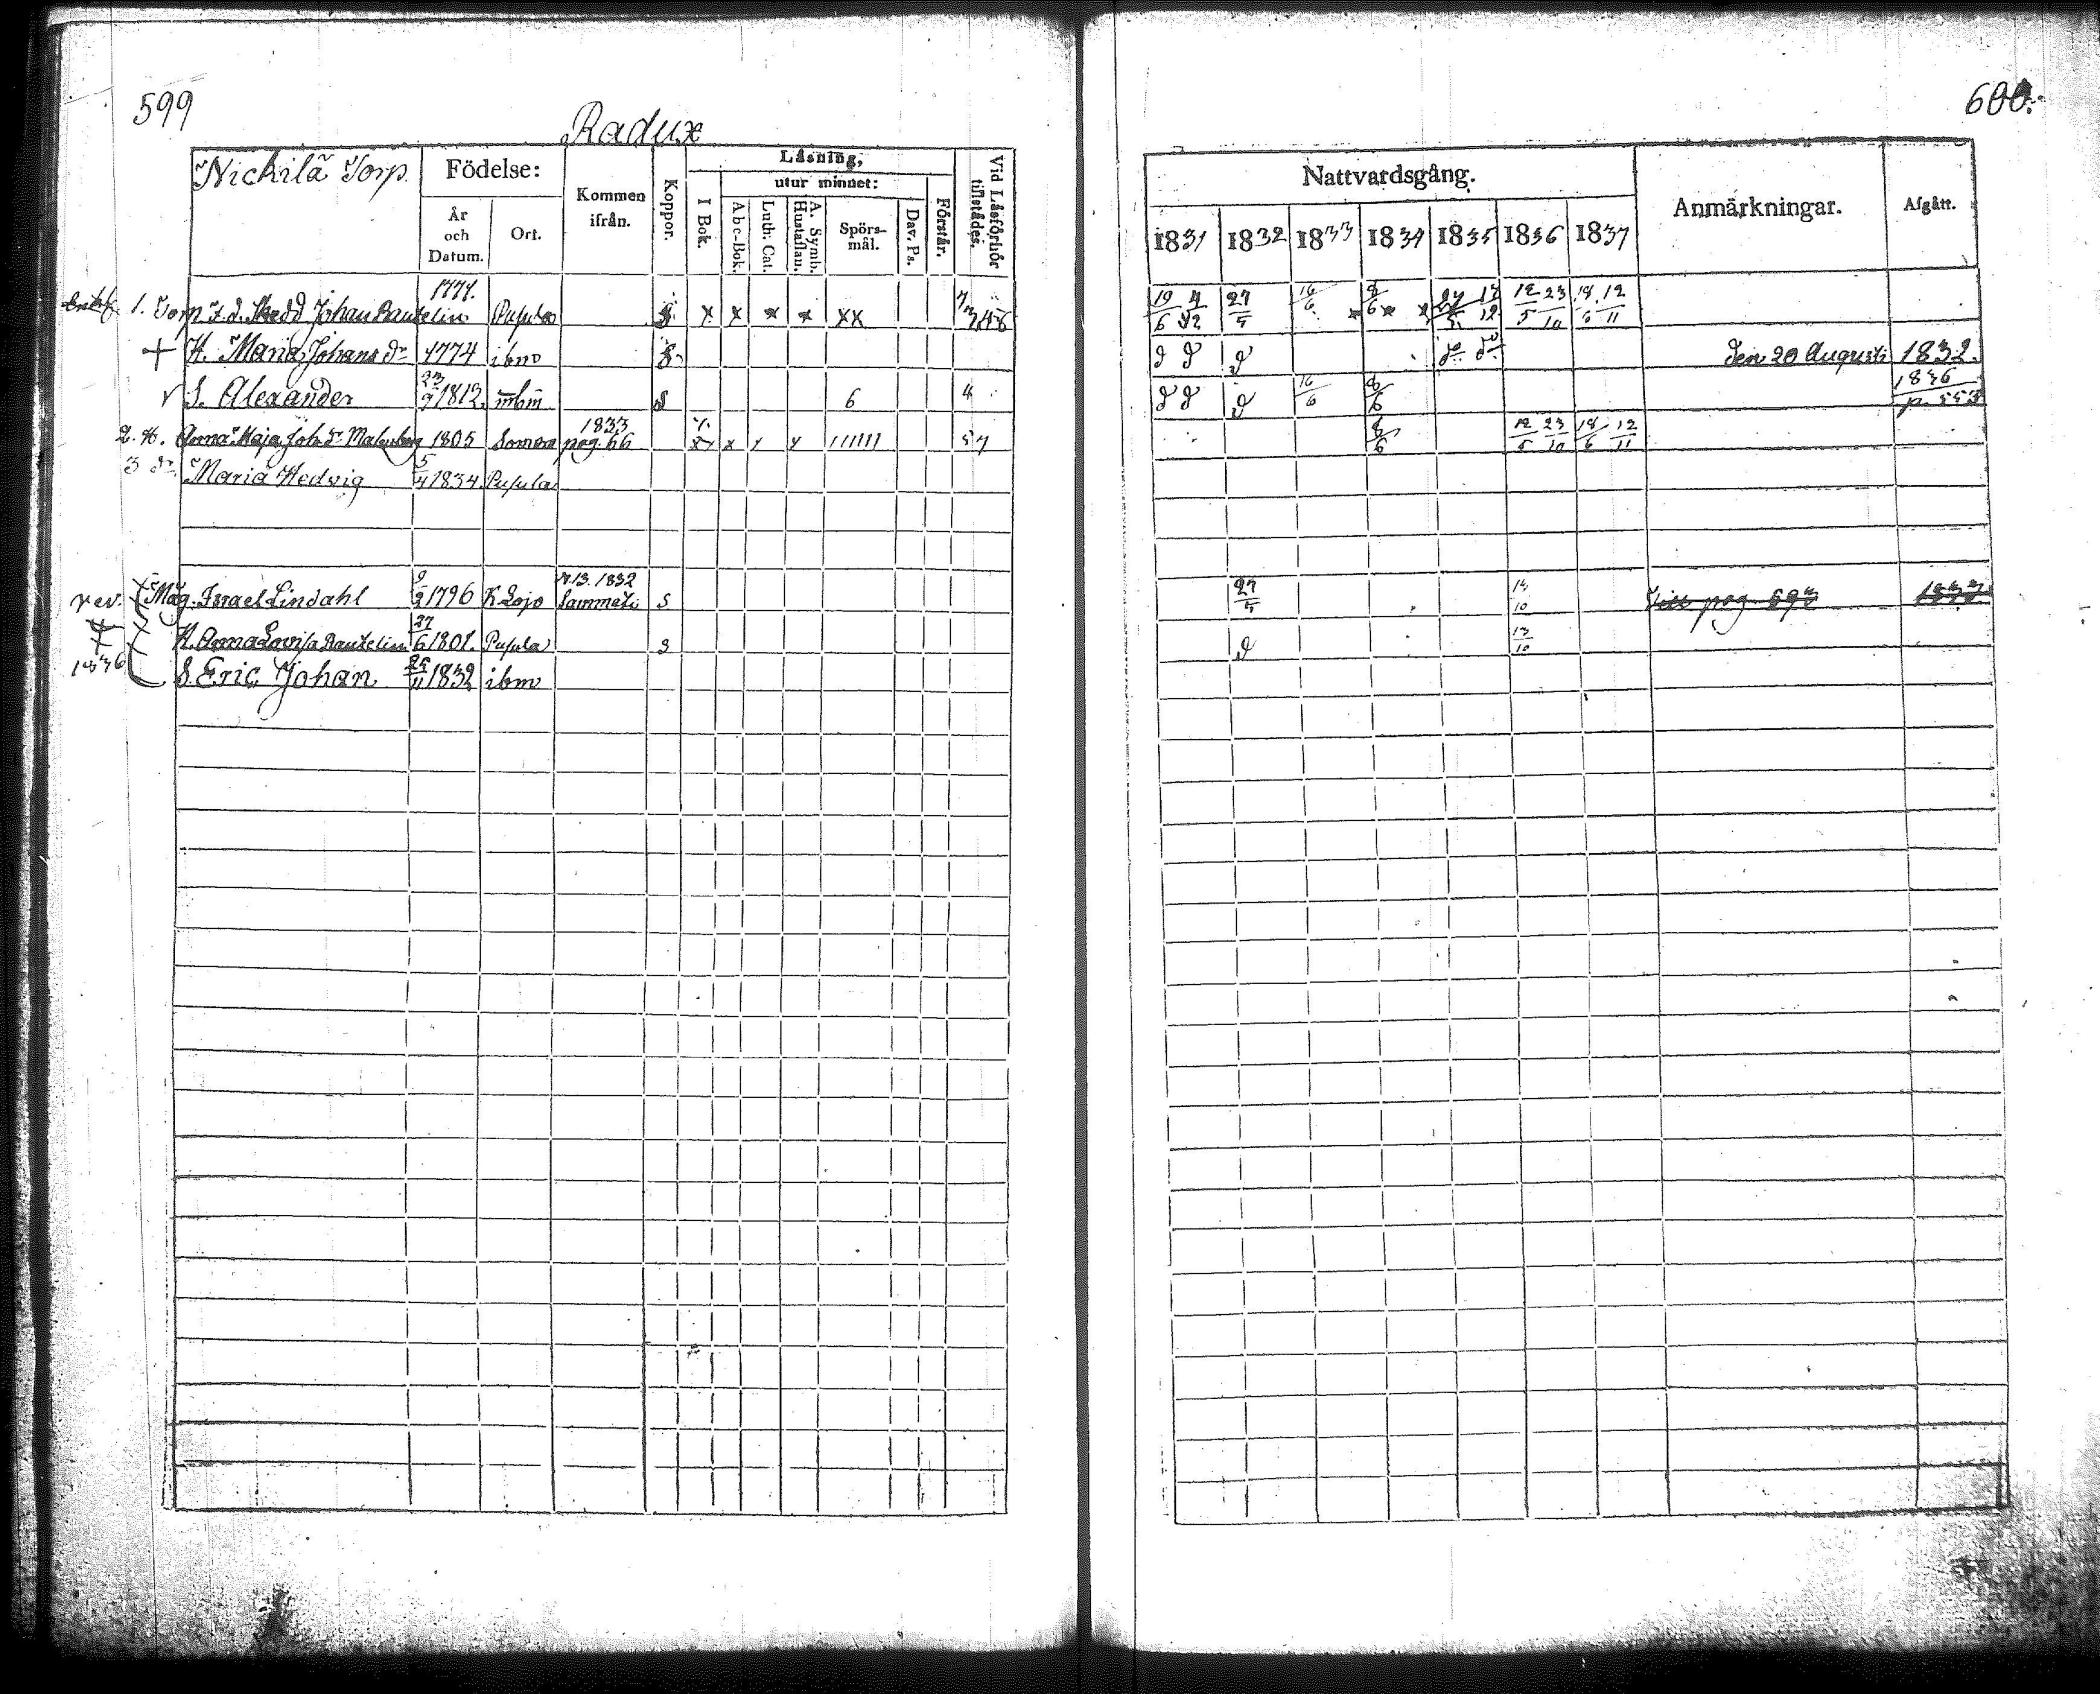 599
Radux
Nichilä Torp.
Födelse:
År och Datum.
Ort.
Kommen ifrån.
Koppor.
Låsning,
I Bok.
utur minnet:
Abc-Bok.
Luth: Cat.
A. Symb. Hustaflan.
Spörs-mål.
Dav. Ps.
Förstår.
Vid Låsförhör tillstädes.
1. Torp. Johan Rautelin 1771. Pusula x x x x xx
+ H. Maria Johans dr 1774 ibm
S. Alexander 23/9 1812 ibm s 6 4
2. H. Anna Maja Joh. dr Malmberg 1805 Somero 1833 pag. 66 x x y y 111111 57
3 dr Maria Hedvig 5/4 1834 Pusula
Mag. Israel Lindahl 9/2 1796 K Lojo N.13. 1832 Sammati s
H. Anna Lovisa Rautelin 27/6 1801. Pusula s
S. Eric Johan 25/11 1832 ibm
1836
600.
Nattvardsgång.
Anmärkningar.
Afgått.
1831 1832 1833 1834 1835 1836 1837
19/6 4/12 27/5 16/6 8/6 12/5 23/10 18/6 12/11
d d d do do den 20 Augusti 1832.
d d d 16/6 8/6 1836 p. 553
8/6 12/5 23/10 18/6 12/11
27/5 13/10 Till pag. 593 1837
d 13/10